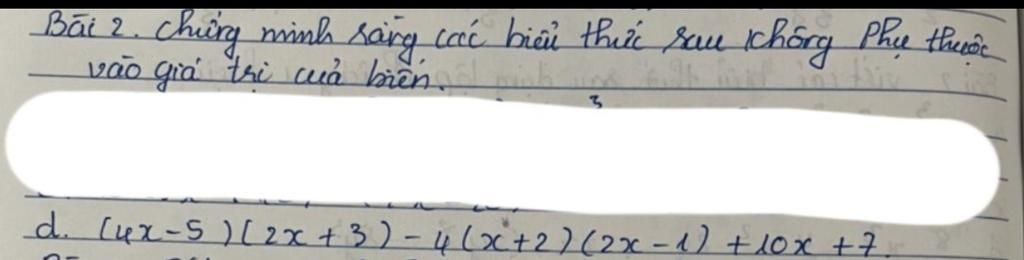 Bài 2. Chứng minh rằng các biểu thức sau không phụ thuộc
vào giá trị của biến.
3
d. (4x-5)(2x+3)-4(x+2)(2x-1)+10x+7